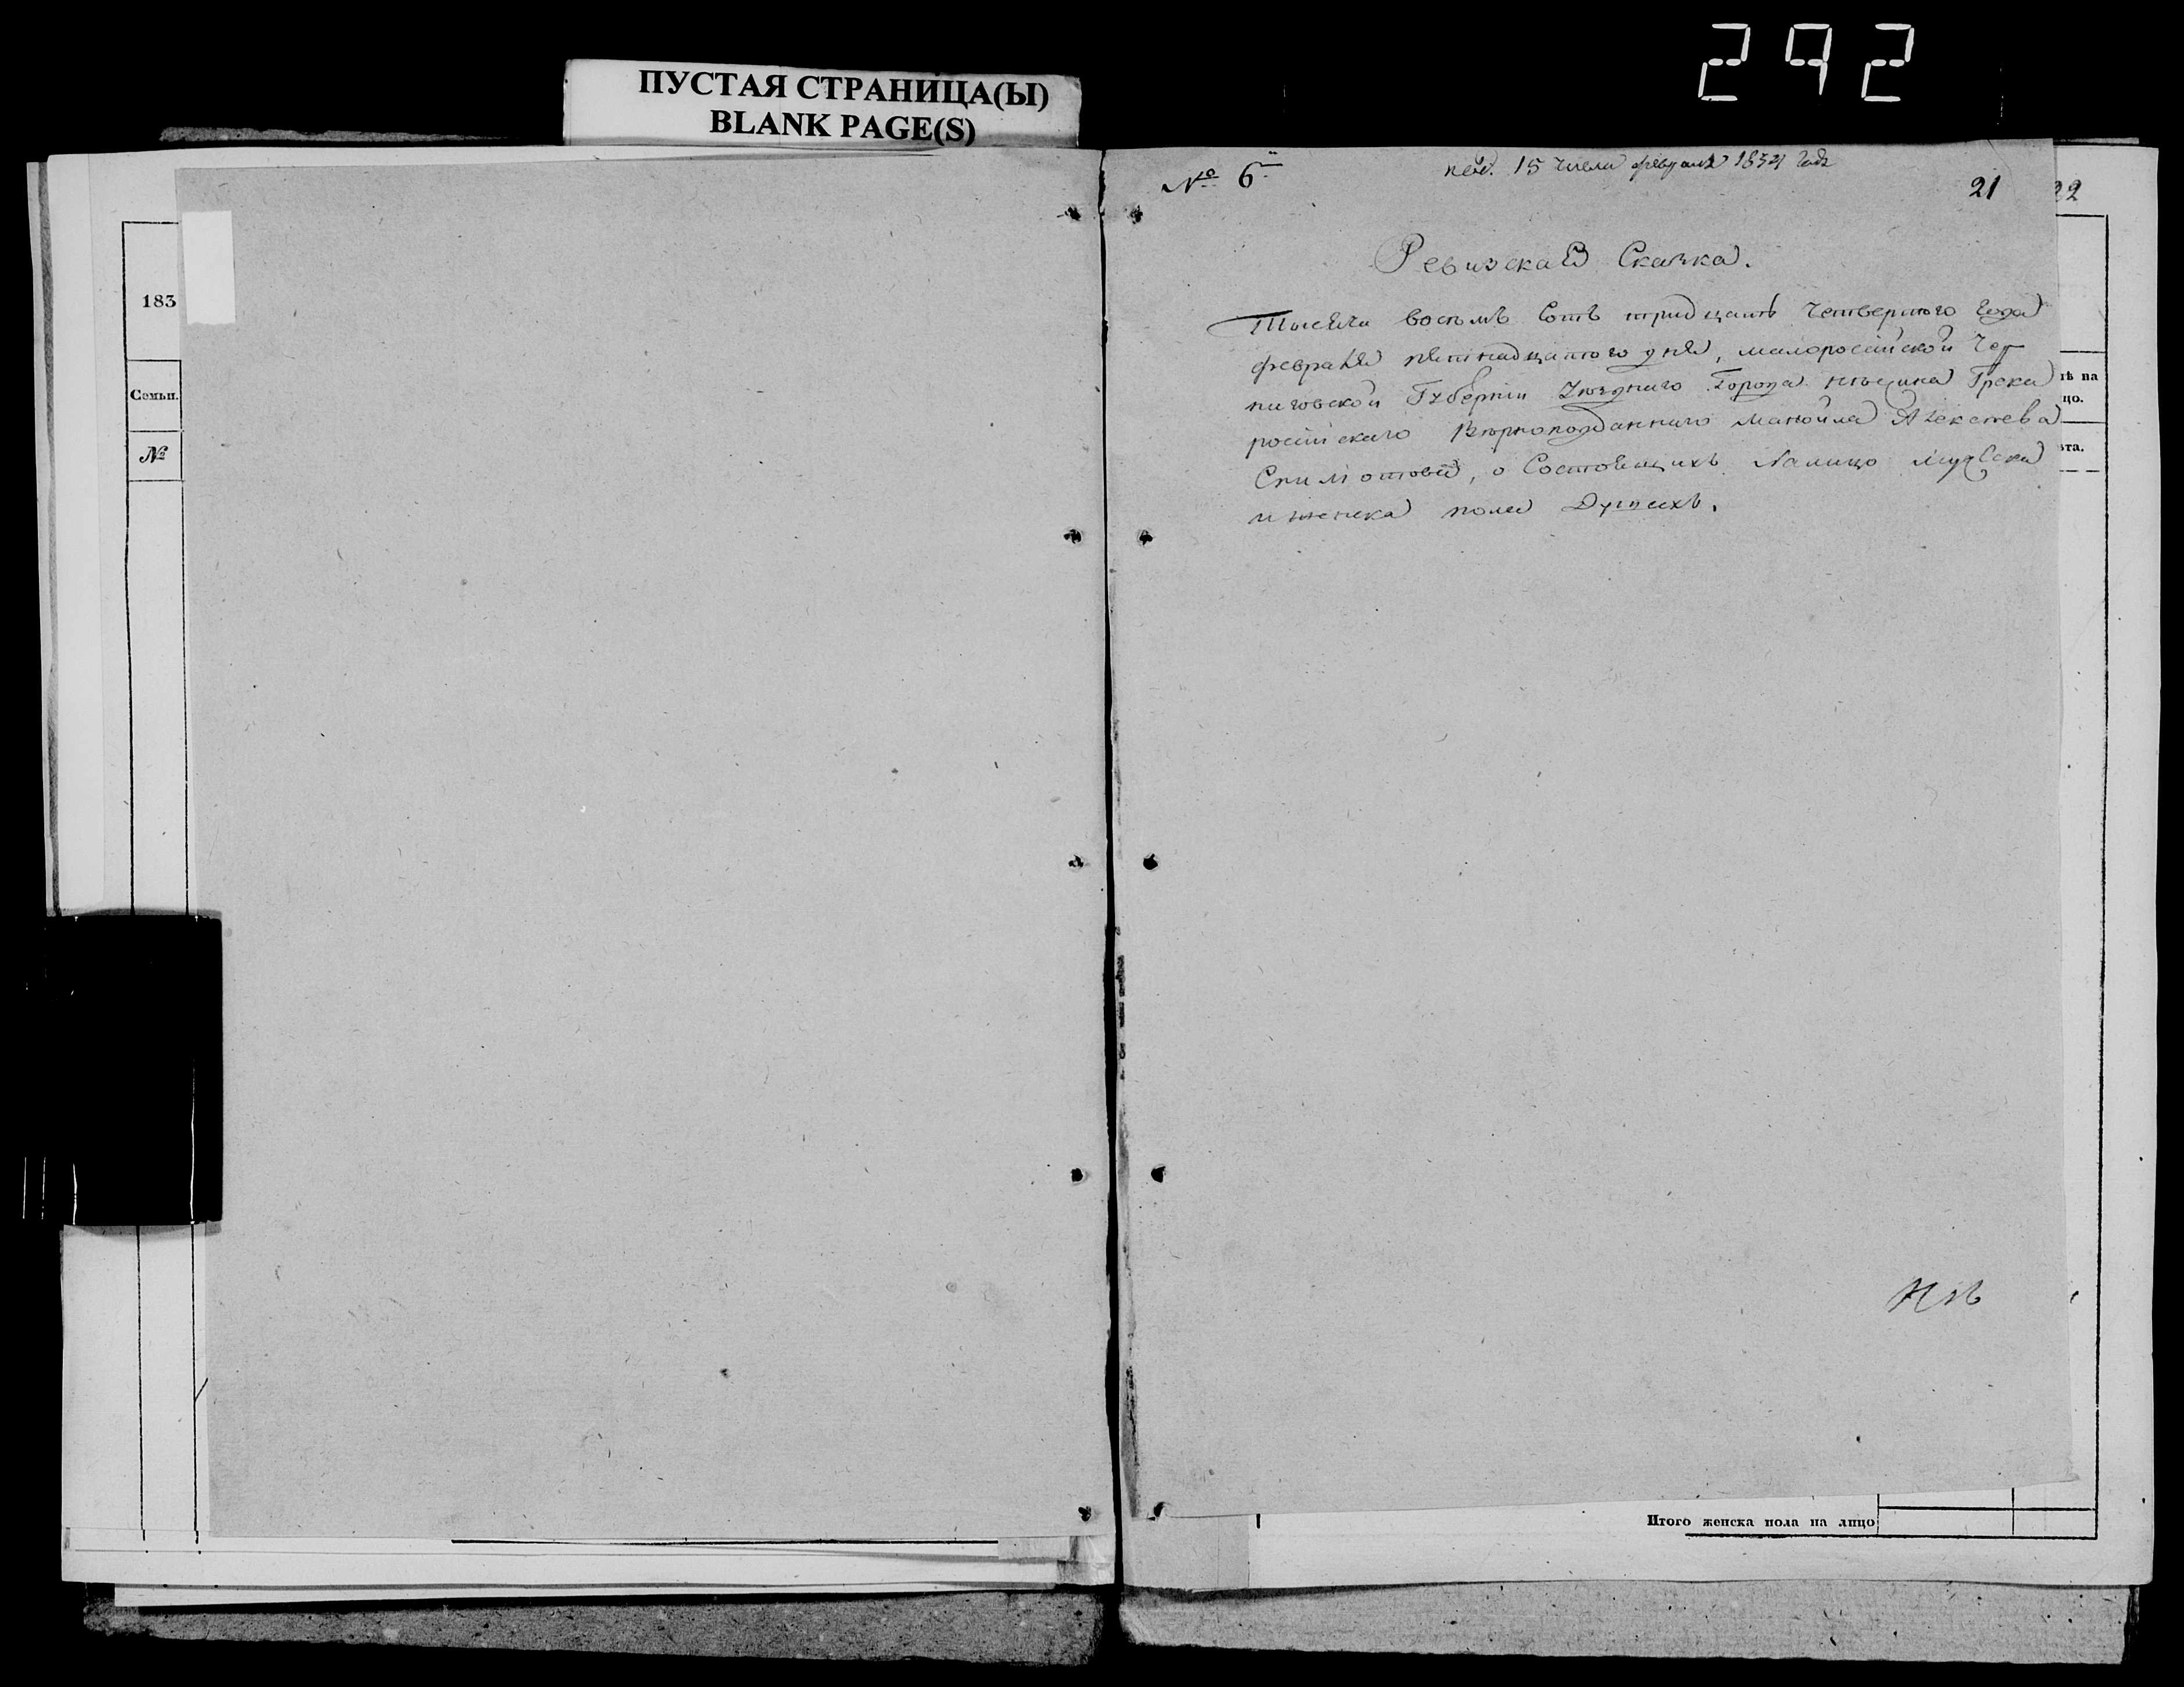 292
ПУСТАЯ СТРАНИЦА(Ы)
BLANK PAGE(S)
№ 6й
15 числа февраля 1834 года
21
22
Ревизская Сказка.
Тысяча восемъ сотъ тридцать четвертого года
февраля пятнадцатого дня, малоросійской Чер
ниговской Губерніи Уѣзднаго Города Нѣжина Грека
російскаго Вѣрноподданнаго Манойла Алексѣева
о Состоящихъ Налицо мужска
и женска пола Душахъ.
183
Семьи.
№
на
цо.
Итого женска пола на лицо